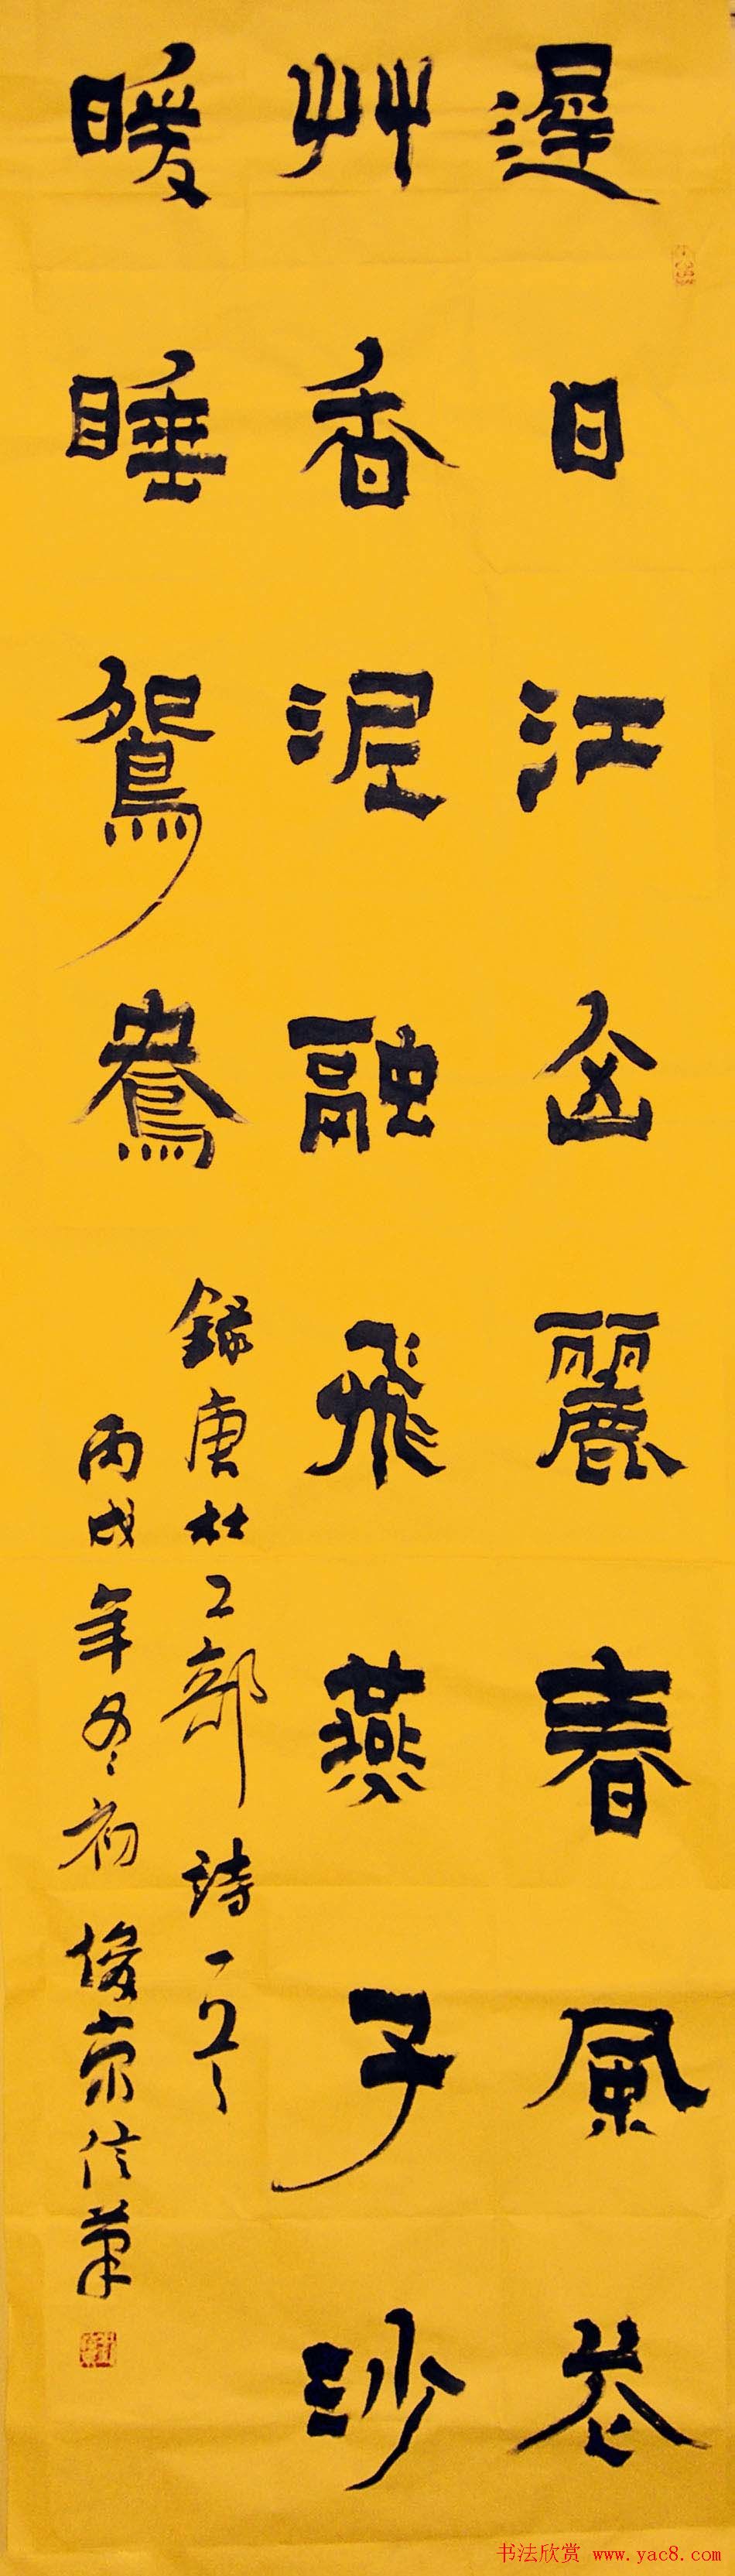 遲日江山麗春風花
艸香泥融飛燕子沙
暖睡鴛鴦
錄唐杜工部詩一首
丙戌年冬初俊京信筆
书法欣赏 www.yac8.com